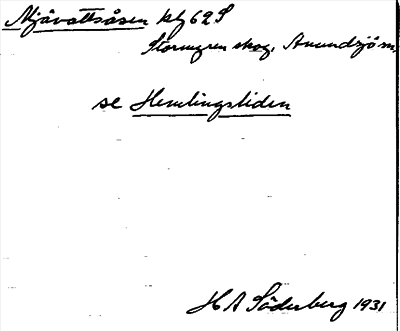 Mjåvattsåsen klj 62 S
Stormyren skog, Anundsjö sn.
se Hemlingsliden
H A Söderberg 1931